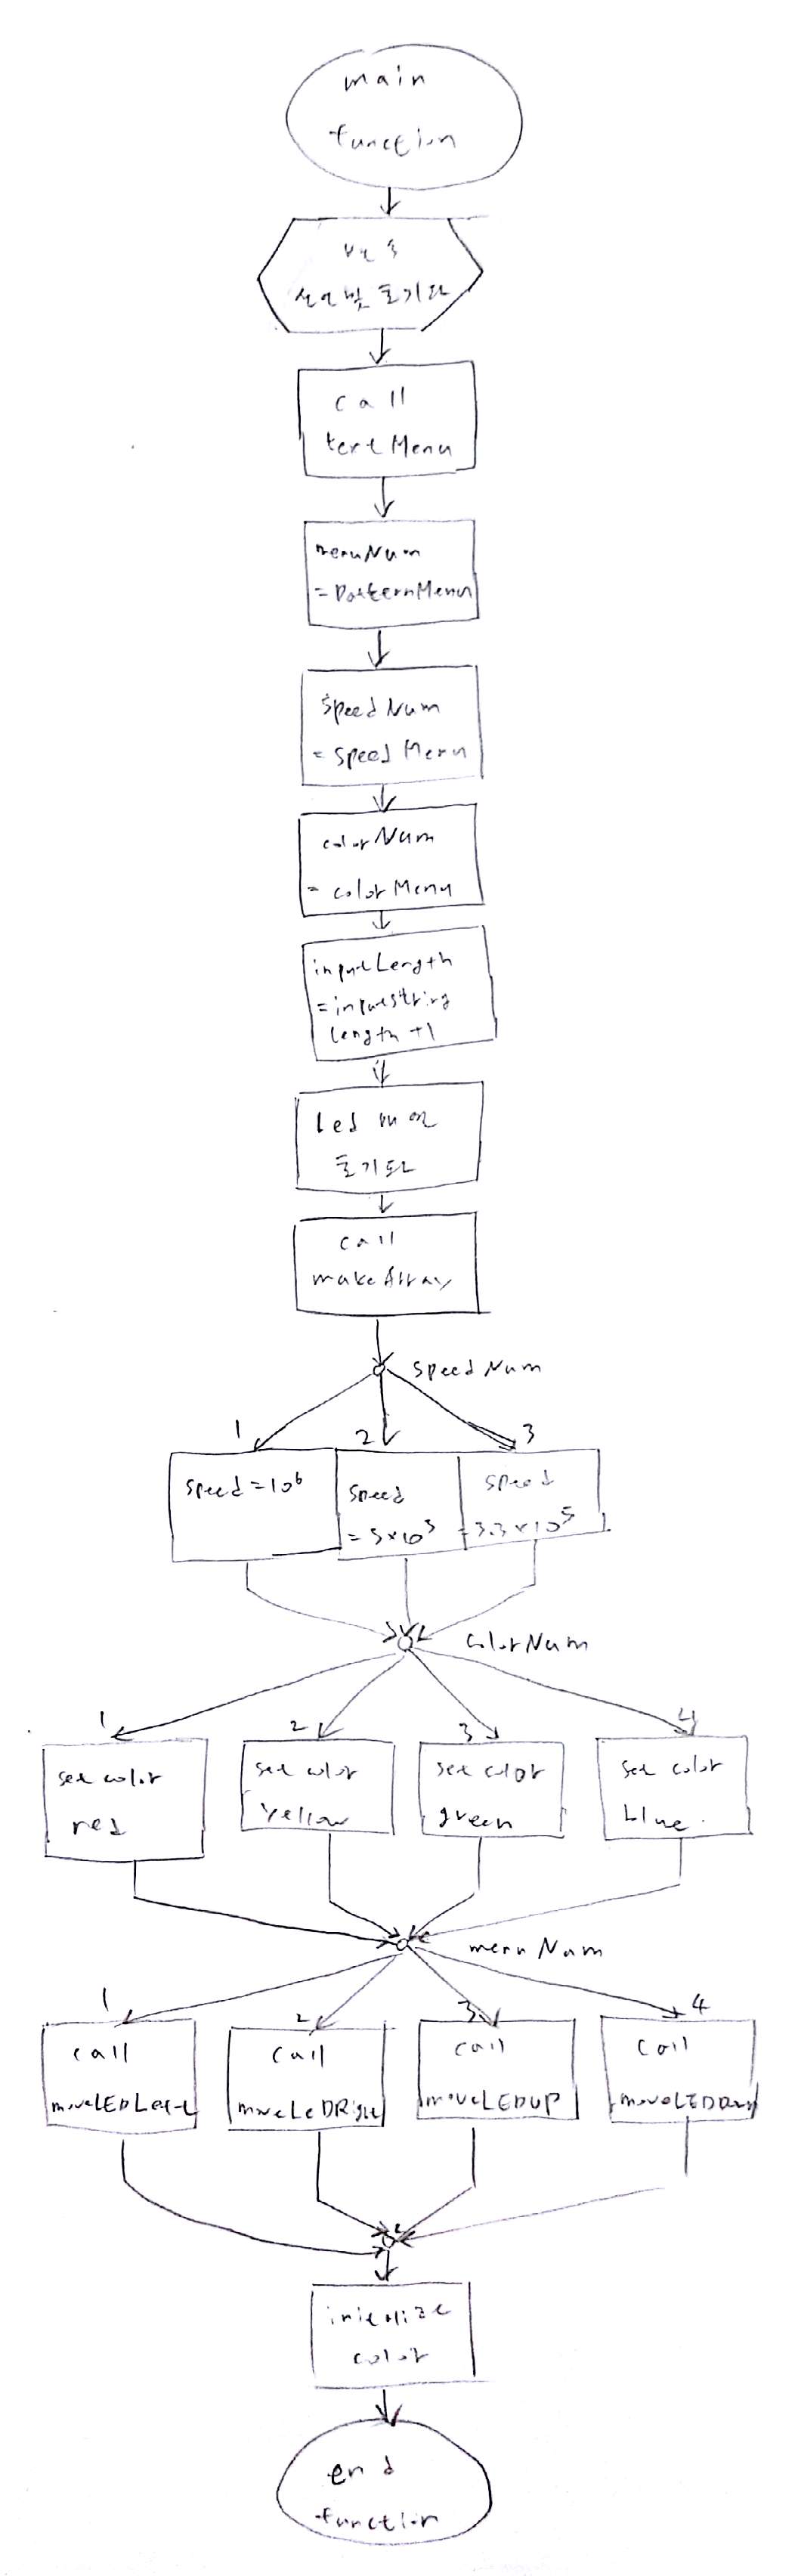 main
function
변수
선언 및 초기화
call
textMenu
menuNum
= PatternMenu
SpeedNum
= Speed Menu
colorNum
= colorMenu
inputLength
= inputString
Length +1
Led
초기화
call
makeArray
SpeedNum
1 2 3
Speed = 10⁶
Speed
= 5×10⁵
Speed
= 3.3×10⁵
colorNum
1 2 3 4
set color
red
set color
Yellow
set color
green
set color
blue.
menuNum
1 2 3 4
call
moveLEDLeft
call
moveLEDRight
call
moveLEDUP
call
moveLEDDown
initialize
color
end
function